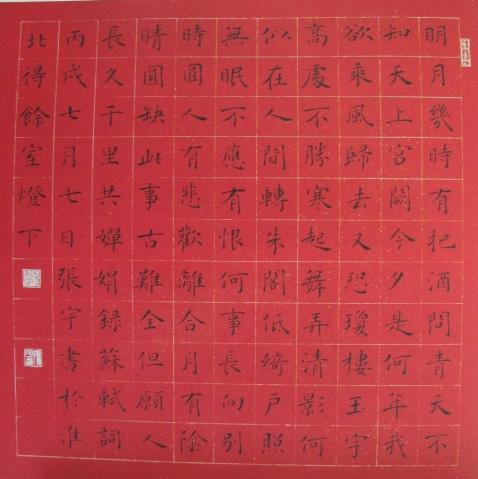 明月幾時有把酒問青天不
知天上宮闕今夕是何年我
欲乘風歸去又恐瓊樓玉宇
高處不勝寒起舞弄清影何
似在人間轉朱閣低綺戶照
無眠不應有恨何事長向別
時圓人有悲歡離合月有陰
晴圓缺此事古難全但願人
長久千里共嬋娟錄蘇軾詞
丙戌七月七日張宇書於淮
北得餘室燈下